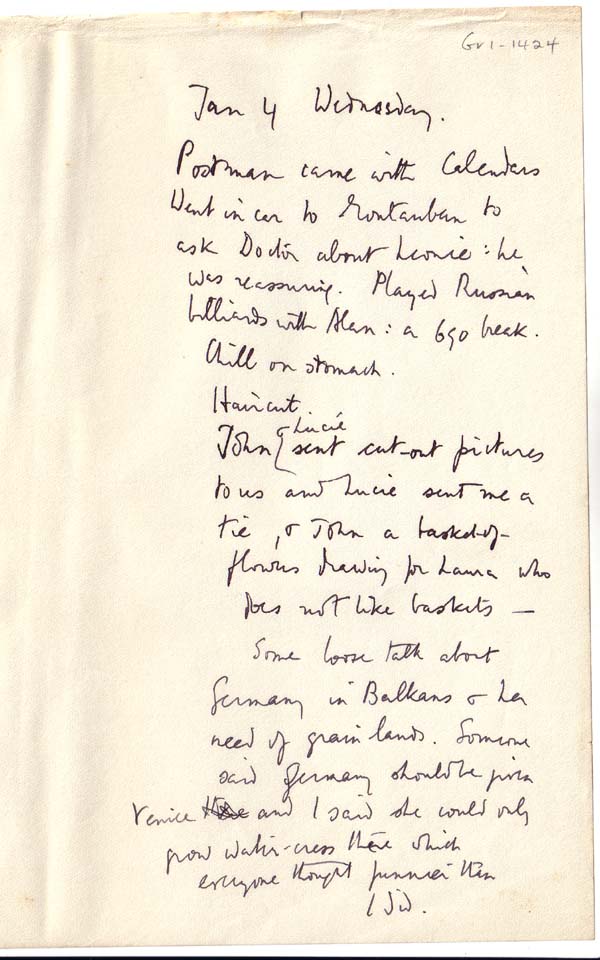 Gr1-1424
Jan 4 Wednesday.
Postman came with Calendars
Went in car to Montauban to
ask Doctor about Leonie: he
was reassuring. Played Russian
billiards with Alan: a 690 break.
Chill on stomach.
Haircut.
John & Lucie sent cut-out pictures
to us and Lucie sent me a
tie, & John a basket-of-
flowers drawing for Laura who
does not like baskets —
Some loose talk about
Germany in Balkans & her
need of grain lands. Someone
said Germany should be given
Venice and I said she could only
grow water-cress there which
everyone thought funnier than
I did.